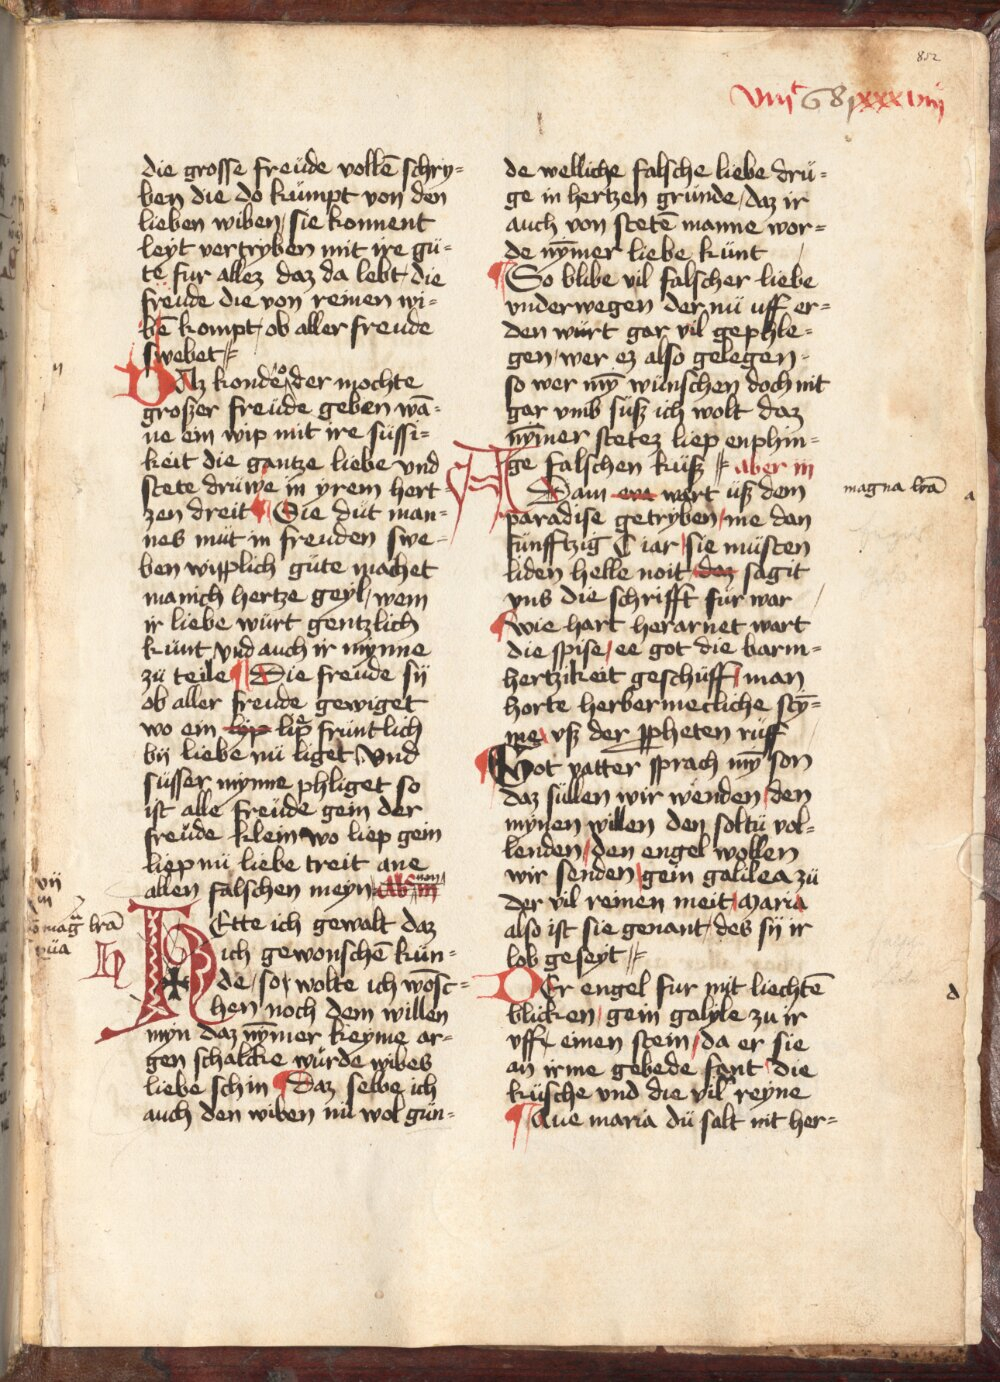 852
viijᶜ 681 xxxviiij
die grosse freüde vollē schry-
ben die do kümpt von den
lieben wiben / sie konnent
leyt vertryben mit ire gü-
te für allez daz da lebt die
freüde die von reinen wi-
bē kompt ob aller freüde
swebet
Daz konde oder mochte
groszer freüde geben wā-
ne ein wip mit ire süssi-
keit die gantze liebe vnd
stete drüwe in yrem hert-
zen dreit Sie düt man-
nes müt in freuden swe-
ben wipplich güte machet
manich hertze geyl / wem
ir liebe würt gentzlich
künt vnd auch ir mynne
zü teile Die freüde sy
ob aller freüde gewiget
wo ein lip lip früntlich
by liebe nü liget Vnd
süsser mynne phliget so
ist alle freüde gein der
freüde klein wo liep gein
liep nü liebe treit ane
allen falschen meyn
Hette ich gewalt daz
ich gewonschē kün-
de / so wolte ich wösc-
hen noch dem willen
myn daz nȳmer keyme ar-
gen schalcke würde wibes
liebe schin Daz selbe ich
auch den wiben nü wol gün-
de welliche falsche liebe drü-
ge in hertzen gründe / daz ir
auch von stetē manne wor-
de nȳmer liebe künt
So blibe vil falscher liebe
vnderwegen der nü uff er-
den würt gar vil gephle-
gen / wer ez also gelegen
so wer mȳ wünschen doch nit
gar vmb süsz ich wolt daz
nȳmer stetez liep enphin-
ge falschen küsz aber in
Adam ewe wart üsz dem
paradise getryben / me dan
fünfftzig C iar / sie müsten
liden helle noit daz sagit
vns die schrifft für war
wie hart herarnet wart
die spise / ee got die barm-
hertzikeit geschüff / man
horte herbermecliche sty-
me vsz der ppheten rüff
Got vatter sprach mȳ son
daz süllen wir wenden / den
mynen willen den soltü vol-
lenden / den engel wollen
wir senden / gein galilea zü
der vil reinen meit / Maria
also ist sie genant / des sy ir
lob geseyt
Der engel für mit liechtē
blicken / gein galyle zu ir
vff einen stein / da er sie
an irme gebede fant die
küsche vnd die vil reyne
Aue maria dü salt nit her-
magna lrā
a
d
vij
in